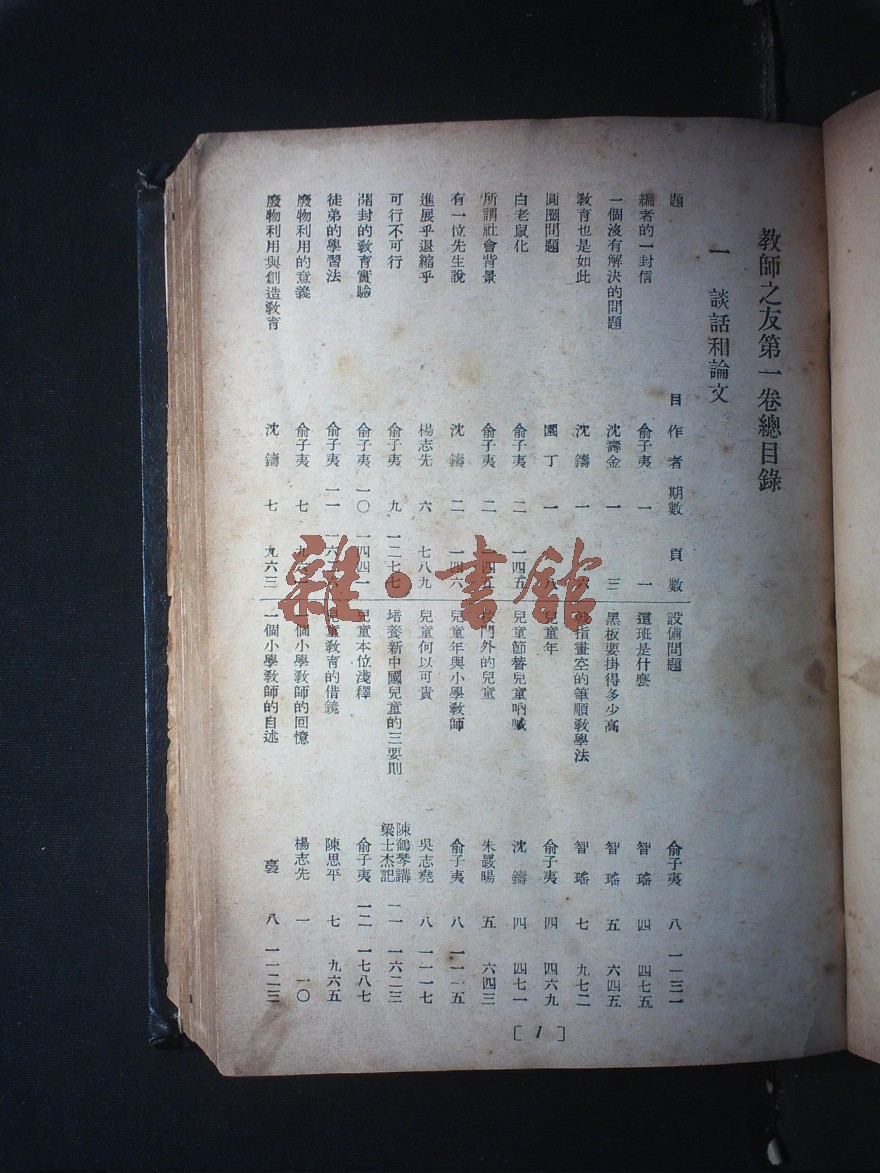 教師之友第一卷總目錄
一 談話和論文
題 目 作者 期數 頁數
編者的一封信 俞子夷 一 一
一個沒有解決的問題 沈壽金 一 三
教育也是如此 沈鑄 一 六
圓圈問題 園丁 一 八
白老鼠化 俞子夷 二 一四五
所謂社會背景 俞子夷 二 一四五
有一位先生說 沈鑄 二 一四六
進展乎退縮乎 楊志先 六 七八九
可行不可行 俞子夷 九 一二七七
開封的教育實驗 俞子夷 一〇 一四四一
徒弟的學習法 俞子夷 一一 一六
廢物利用的意義 俞子夷 七 九六
廢物利用與創造教育 沈鑄 七 九六三
設備問題 俞子夷 八 一一三一
這班是什麼 智瑤 四 四七五
黑板要掛得多少高 智瑤 五 六四五
指畫空的筆順教學法 智瑤 七 九七二
兒童年 俞子夷 四 四六九
兒童節替兒童吶喊 沈鑄 四 四七一
校門外的兒童 朱晸暘 五 六四三
兒童年與小學教師 俞子夷 八 一一一五
兒童何以可貴 吳志堯 八 一一一七
培養新中國兒童的三要則 陳鶴琴講 梁士杰記 一一 一六二三
兒童本位淺釋 俞子夷 一二 一七八七
兒童教育的借鏡 陳思平 七 九六五
一個小學教師的回憶 楊志先 一 一〇
一個小學教師的自述 八 一一二三
[1]
雜·書館